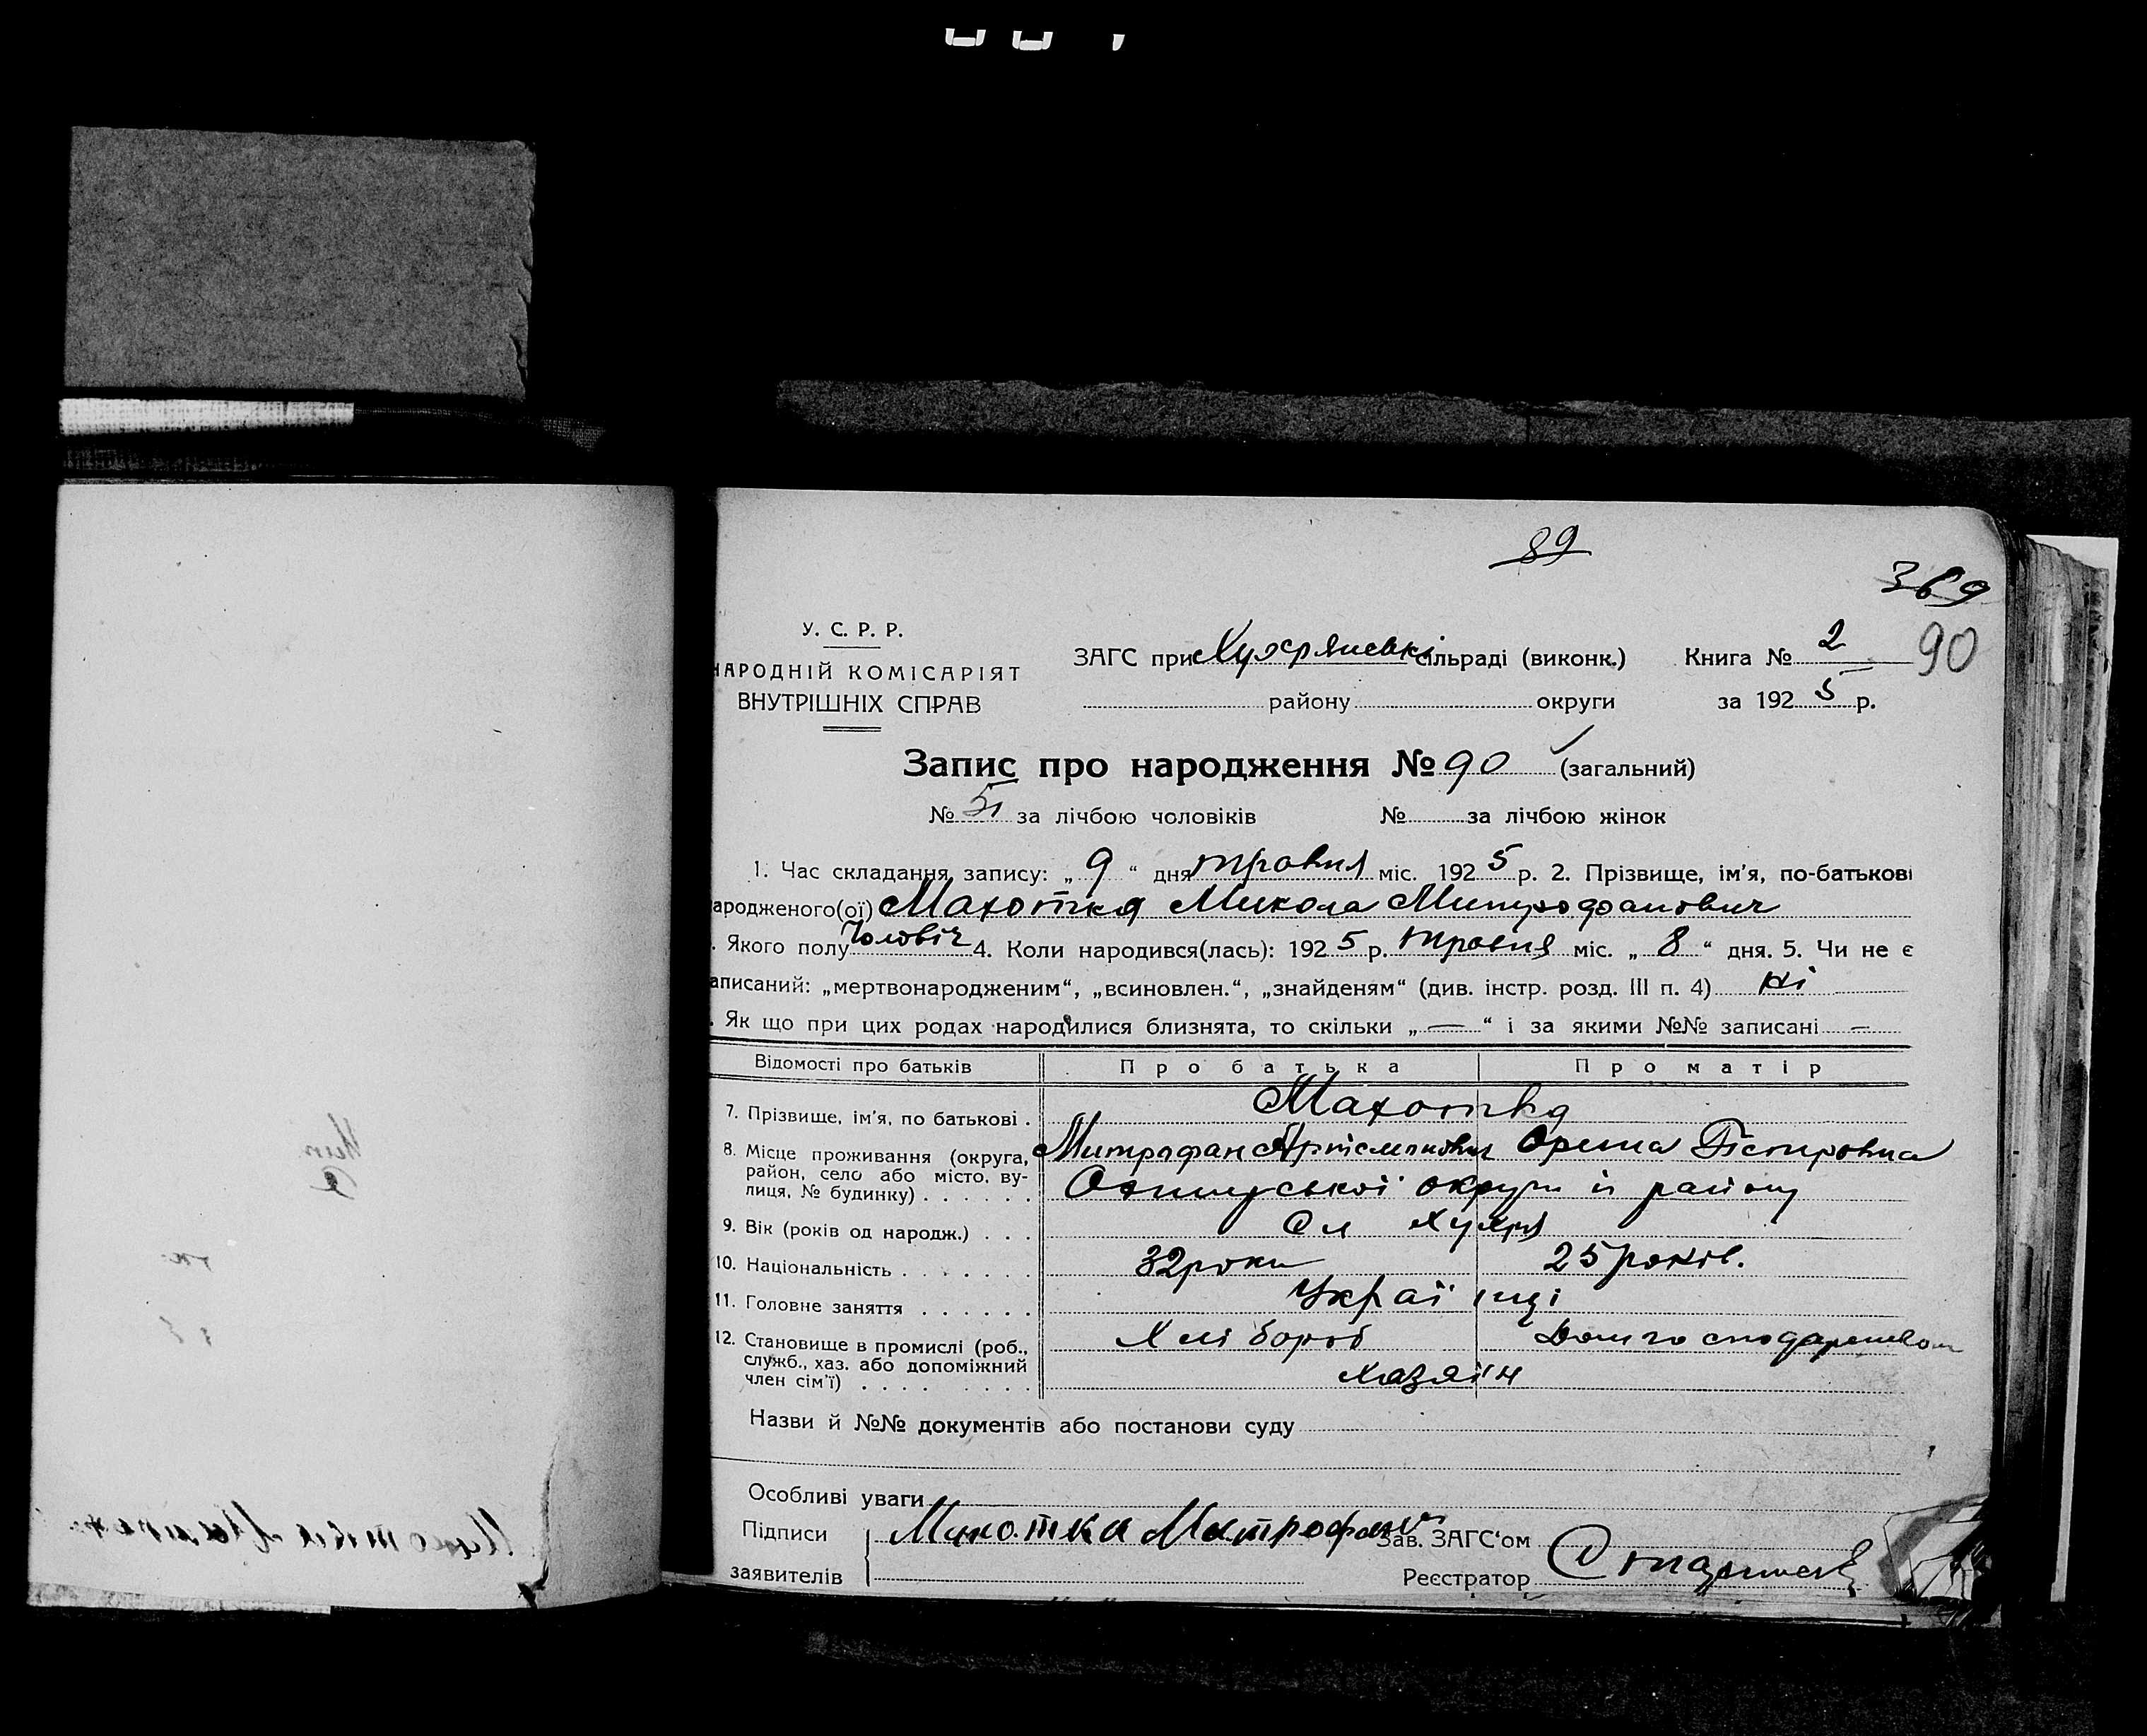 89
369
У. С. Р. Р.
НАРОДНІЙ КОМІСАРІЯТ
ВНУТРІШНІХ СПРАВ
ЗАГС при Хухрянські сільраді (виконк.) Книга № 2 90
району округи за 1925 р.
Запис про народження № 90 (загальний)
№ 51 за лічбою чоловіків № за лічбою жінок
1. Час складання запису: „ 9 “ дня травня міс. 1925 р. 2. Прізвище, ім'я, по-батькові
ародженого(ої) Махотка Микола Митрофанович
. Якого полу Чоловіч 4. Коли народився(лась): 1925 р. травня міс. „ 8 “ дня. 5. Чи не є
аписаний: „мертвонародженим“, „всиновлен.“, „знайденям“ (див. інстр. розд. III п. 4) ні
. Як що при цих родах народилися близнята, то скільки „ — “ і за якими №№ записані —
Відомості про батьків Про батька Про матір
7. Прізвище, ім'я, по батькові . Махотка
8. Місце проживання (округа, Митрофан Артемович Орина Петровна
район, село або місто, ву-
лиця, № будинку) . . . . . . Охтирської округи й району
9. Вік (років од народж.) . . . Сл Хухря
10. Національність . . . . . . . 32 роки 25 років.
11. Головне заняття . . . . . . Українці
12. Становище в промислі (роб., Хлібороб Домгосподарством
служб., хаз. або допоміжний
член сім'ї) . . . . . . . . . Хазяїн
Назви й №№ документів або постанови суду
Особливі уваги
Підписи Махотка Митрофан Зав. ЗАГС'ом
заявителів Реєстратор